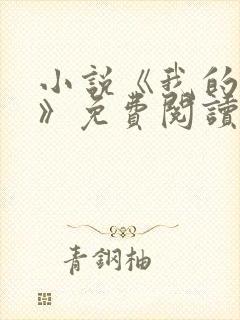 小說《我的
》免費閱讀
青鋼柚